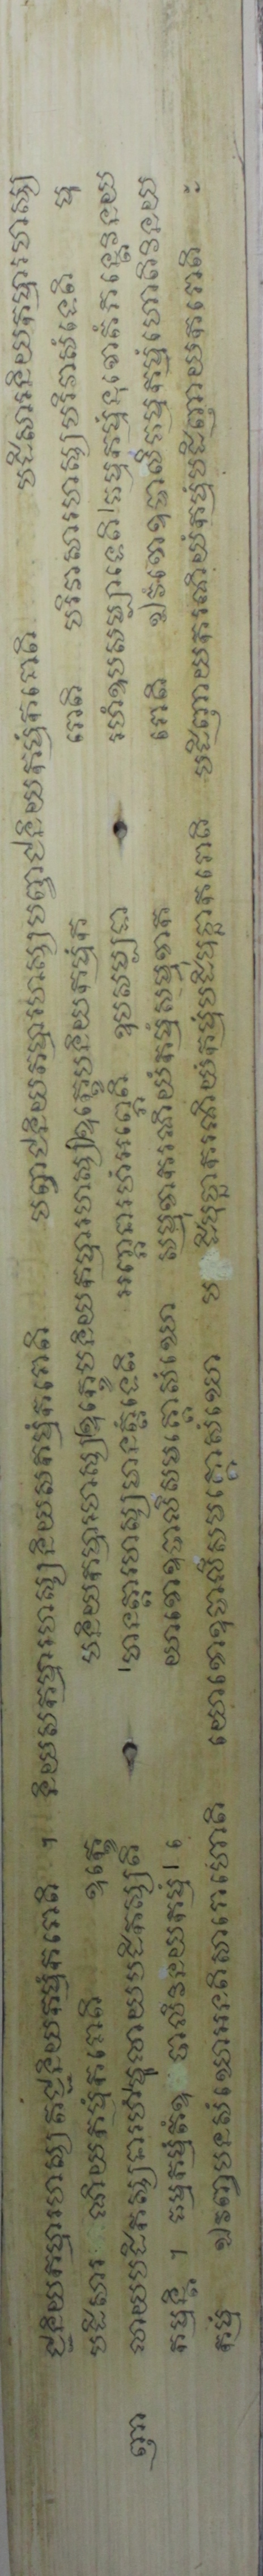 ជ្ជនិយកម្មារហស្ស តជ្ជនិយកម្មំករោតិ ។ និយសកម្មារហស្ស និយសកម្មំករោតិ បញ្វាជនិយកម្មារហស្ស បញ្វាជនិយកម្មំករោតិ បដិសារនិយកម្មារហស្ស
បដិសារ ណិយកម្មំករោតិ ឧក្ខេ បនិយកម្មារហស្ស ឧក្ខេបនិយកម្មារហស្ស ឧក្ខេបនិយកម្មំក រោតិ បរិវាសារហស្ស បរិវាសំទេតិ មុ
ញា លាយបដិកស្សនារហំ មូលាយបដិកស្សតិ មានត្តារហស្ស មានត្តំទេតិ អញ្ភានារហំអញ្ភេតិ ឧបសម្បទា រហំឧបសម្បាទេតិ ធម្មកម្មំនុខោតំភន្តេវិនយ
កម្មន្តិ ។ ធម្មកម្មំតំឧ បាលិវិនយកម្មំ យោខោឧបាលិសមគ្គោសំឃោ សម្មុខាករណិយំកម្មំសម្មុខាក រោតិ ឯវំខោឧបាលិកម្មកម្មំហោតិវិនយ
កម្មំ ឯវញ្ចបនសំឃោអនតិសារោហោតិ យោខោឧបាលិសមគ្គោសំឃោ ប ដិបុច្ឆាករណិយំកម្មំបដិបុច្ឆាករោតិ បដិញាយករណិយំកម្មំបដិញាយករោតិ